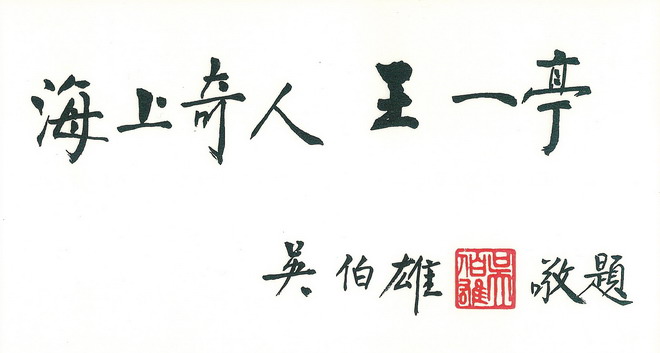 海上奇人 王一亭
吳伯雄 吳伯雄 敬題